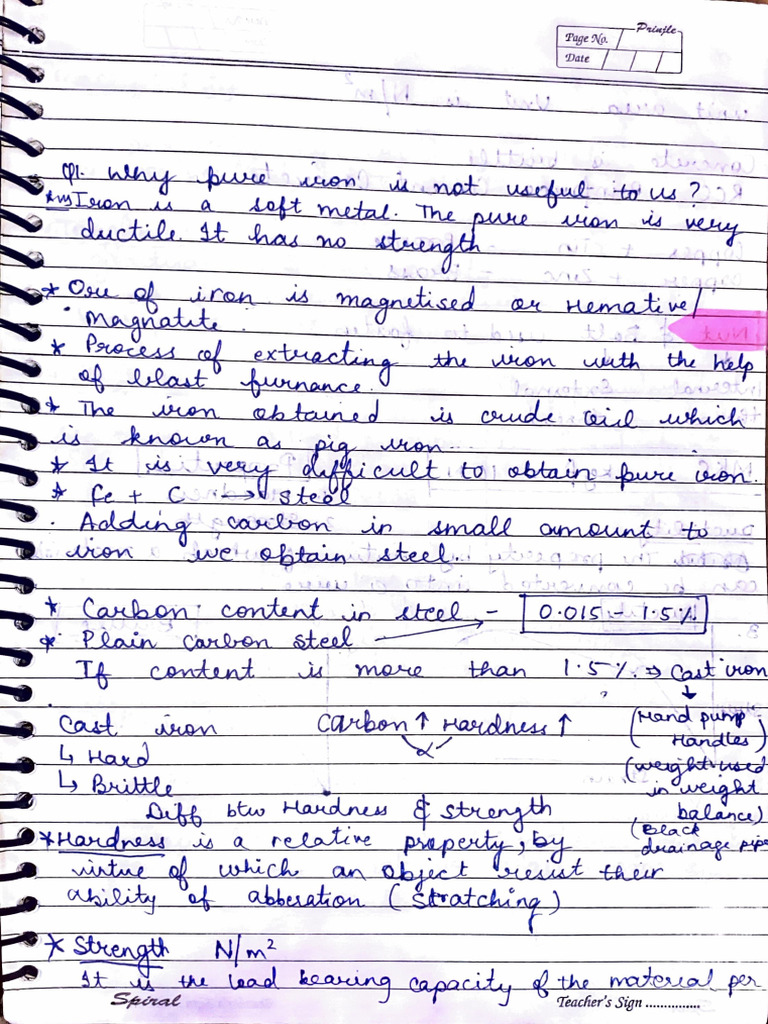 Prinjle
Page No.
Date
Q1. Why pure iron is not useful to us?
Ans Iron is a soft metal. The pure iron is very
ductile. It has no strength
* Ore of iron is magnetised or Hemative/
magnatite.
* Process of extracting the iron with the help
of blast furnance.
* The iron obtained is crude oil which
is known as pig iron.
* It is very difficult to obtain pure iron.
* Fe + C → Steel
. Adding carbon in small amount to
iron we obtain steel.
* Carbon content in steel - 0.015 - 1.5%
* Plain carbon steel
If content is more than 1.5% ⇒ Cast iron
↓
Cast iron Carbon ↑ Hardness ↑ (Hand pump
Handles)
↳ Hard ∝ (weight used
↳ Brittle in weight
balance)
Diff btw Hardness & Strength
(Black
drainage pipe
* Hardness is a relative property, by
virtue of which an object resist their
ability of abberation (Stratching)
* Strength N/m²
It is the load bearing capacity of the material per
Spiral
Teacher's Sign ...............